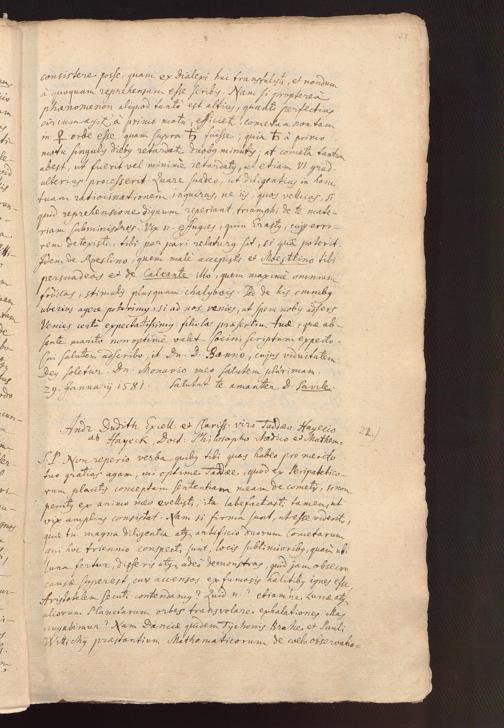 consistere posse, quam ex dialexi hui transtulisti, et nondum
à quoquam reprehensum esse scribis. Nam si propterea
phænomenon aliquod tantò est altius, quantò perfectius
circumagit à primo motu, efficiet, cometam non tam
in ♀ orbe esse quam supra ♄ fuisse; quia ♄ à primo
motu singulis dieb9 retardat duob9 minutis; at cometa tantum
abest, ut fuerit vel minimè retardat9, ut etiam VI grad
ulterius processerit. Quare suadeo, ut diligentius in hanc
tuam ratiocinationem inquiras, ne iis, quos vellicas, si
quid reprehensione dignum reperiant, triumphi de te mate-
riam subministres. Vix n. effugies, quin Erasty, cujus erro-
rem detexisti, tibi par pari relatur9 sit, si quà poterit.
Idem de Mœslino, quem malè accepisti, et Mœstlino tibi
persuadeas et de Calcante illo, quem maximè omnium
fodicas, stimulis plusquam chalybeis. Sed de his omnib9
uberius agere poterimus, si ad nos venies, ut spem nobis affers
Venies certè expectatissim9 filiolæ præsertim tuæ, quæ ab-
sente marito non optimè valet. Socini scriptum expecto.
Cui salutem adscribo, et Dn. D. Banno, cujus viduitatem
Deus soletur. Dn. Monavio meo salutem plurimam.
29. Januarij 1581. Salutat te amanter D. Savile.
Andr. Dudith Excell. et Clariss. viro Taddæo Hagecio
ab Hayeck Doct. Philosopho Medico et Mathem.
S. P. Non reperio verba, quib9 tibi quas habeo pro merito
tuo gratias agam, mi optime Taddæe, quod ex Peripatetico-
rum placitis conceptam sententiam meam de cometis, si non
penit9 ex animo meo evellisti, ita labefactasti tamen, ut
vix amplius consistat. Nam si firma sunt, ut esse videnr,
quæ tu magna diligentia atq artificio duorum Cometarum
qui hoc triennio conspecti sunt, locis sublimioribus, quam ubi
luna fertur, disseris atq adeò demonstras, quid jam obsecro
causæ superest, cur accensos ex fumosis halitib9 ignes esse,
Aristotelem secuti contendam9? Quid n.? etiamne Lunæ atq
aliorum Planetarum orbes transvolare exhalationes ima-
ginabimur? Nam Danicæ quidem Tychonis Brahe et Pauli
Wittichij præstantium Mathematicorum de cœlo observatio-